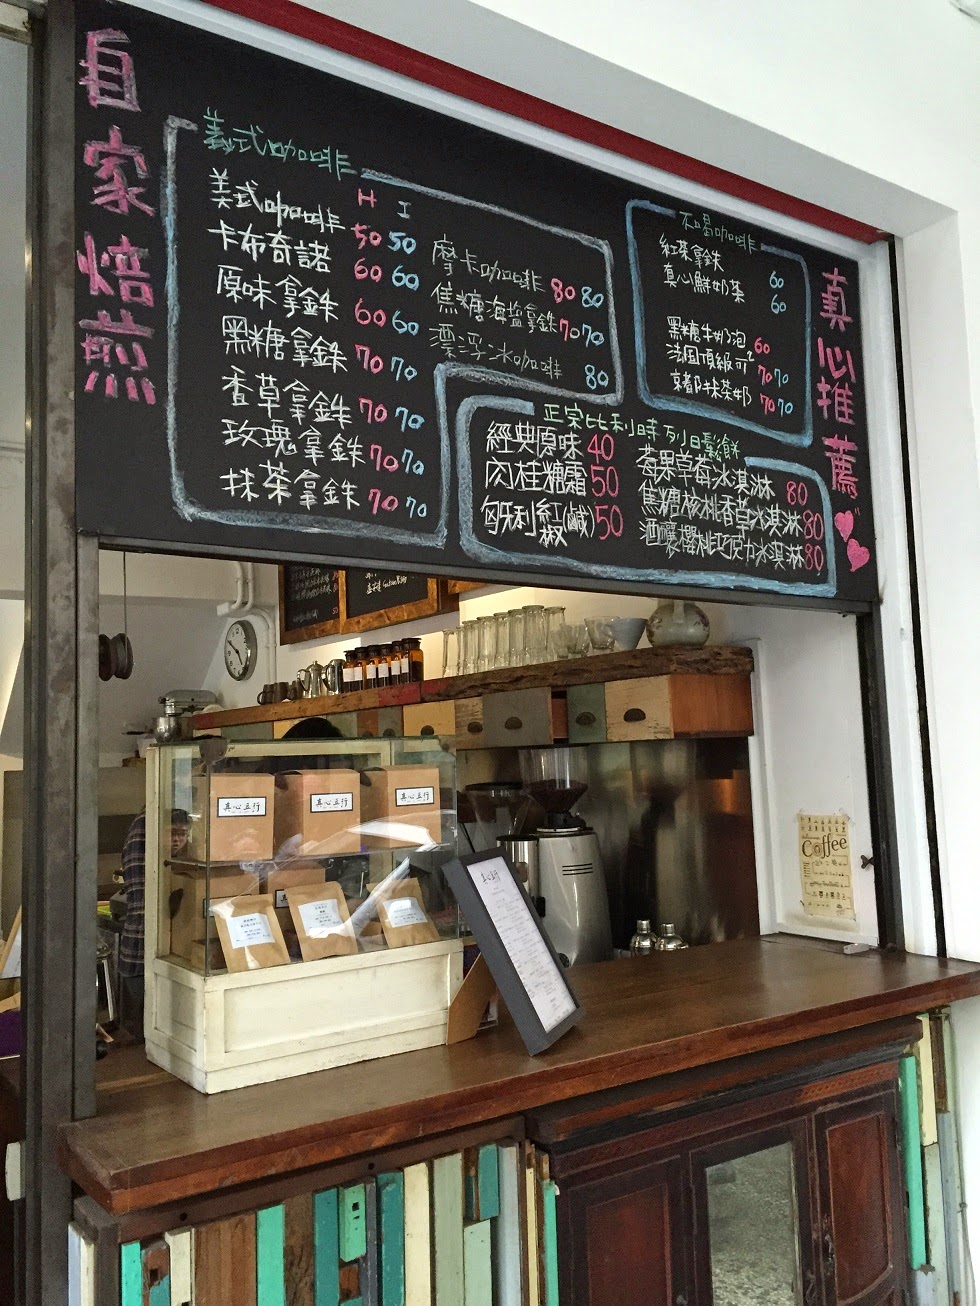 自家焙煎
義式咖啡
H I
美式咖啡 50 50
卡布奇諾 60 60
原味拿鉄 60 60
黑糖拿鉄 70 70
香草拿鉄 70 70
玫瑰拿鉄 70 70
抹茶拿鉄 70 70
摩卡咖啡 80 80
焦糖海盐拿鉄 70 70
漂浮冰咖啡 80
不喝咖啡
紅茶拿鉄 60
真心鮮奶茶 60
黑糖牛奶泡 60
法国頂級可² 70 70
京都抹茶奶 70 70
正宗比利時列日鬆餅
經典原味 40
肉桂糖霜 50
匈牙利紅椒(鹹) 50
莓果草莓冰淇淋 80
焦糖核桃香草冰淇淋 80
酒釀櫻桃巧克力冰淇淋 80
真心推薦
真心豆行
真心豆行
真心豆行
真心豆行
Coffee